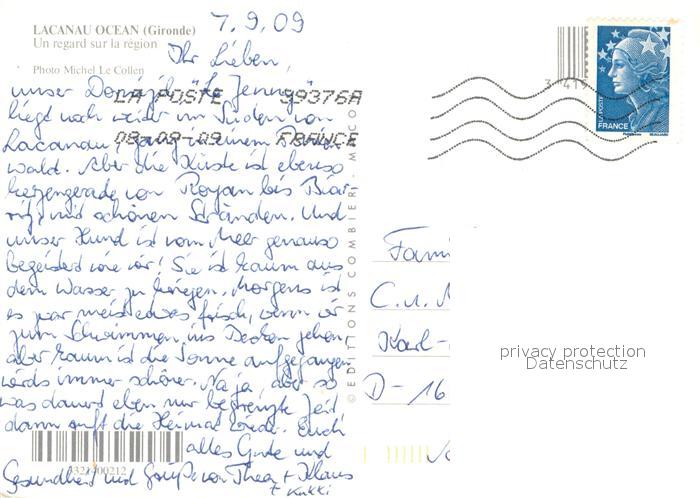 7.9.09
LACANAU OCEAN (Gironde)
Un regard sur la région
Ihr Lieben,
Photo Michel Le Collen
unser
LA POSTE 99376A
liegt noch weiter im Süden von
08-09-09 FRANCE
Lacanau, einem
wald. Aber die Küste ist ebenso
kerzengerade von Royan bis Biar-
ritz mit schönen Stränden. Und
unser Hund ist vom Meer genauso
begeistert wie wir! Sie ist kaum aus
dem Wasser zu kriegen. Morgens ist
es zwar meist etwas frisch, wenn wir
zum Schwimmen ins Becken gehen,
aber kaum ist die Sonne aufgegangen
wirds immer schöner. Na ja, aber so
was dauert eben nur begrenzte Zeit
dann ruft die Heimat wieder. Euch
alles Gute und
Gesundheit und Grüße von Thea + Klaus
+ Kukki
© EDITIONS COMBIER
LA POSTE
FRANCE
Fami
C. u.
Karl-
D-16
privacy protection
Datenschutz